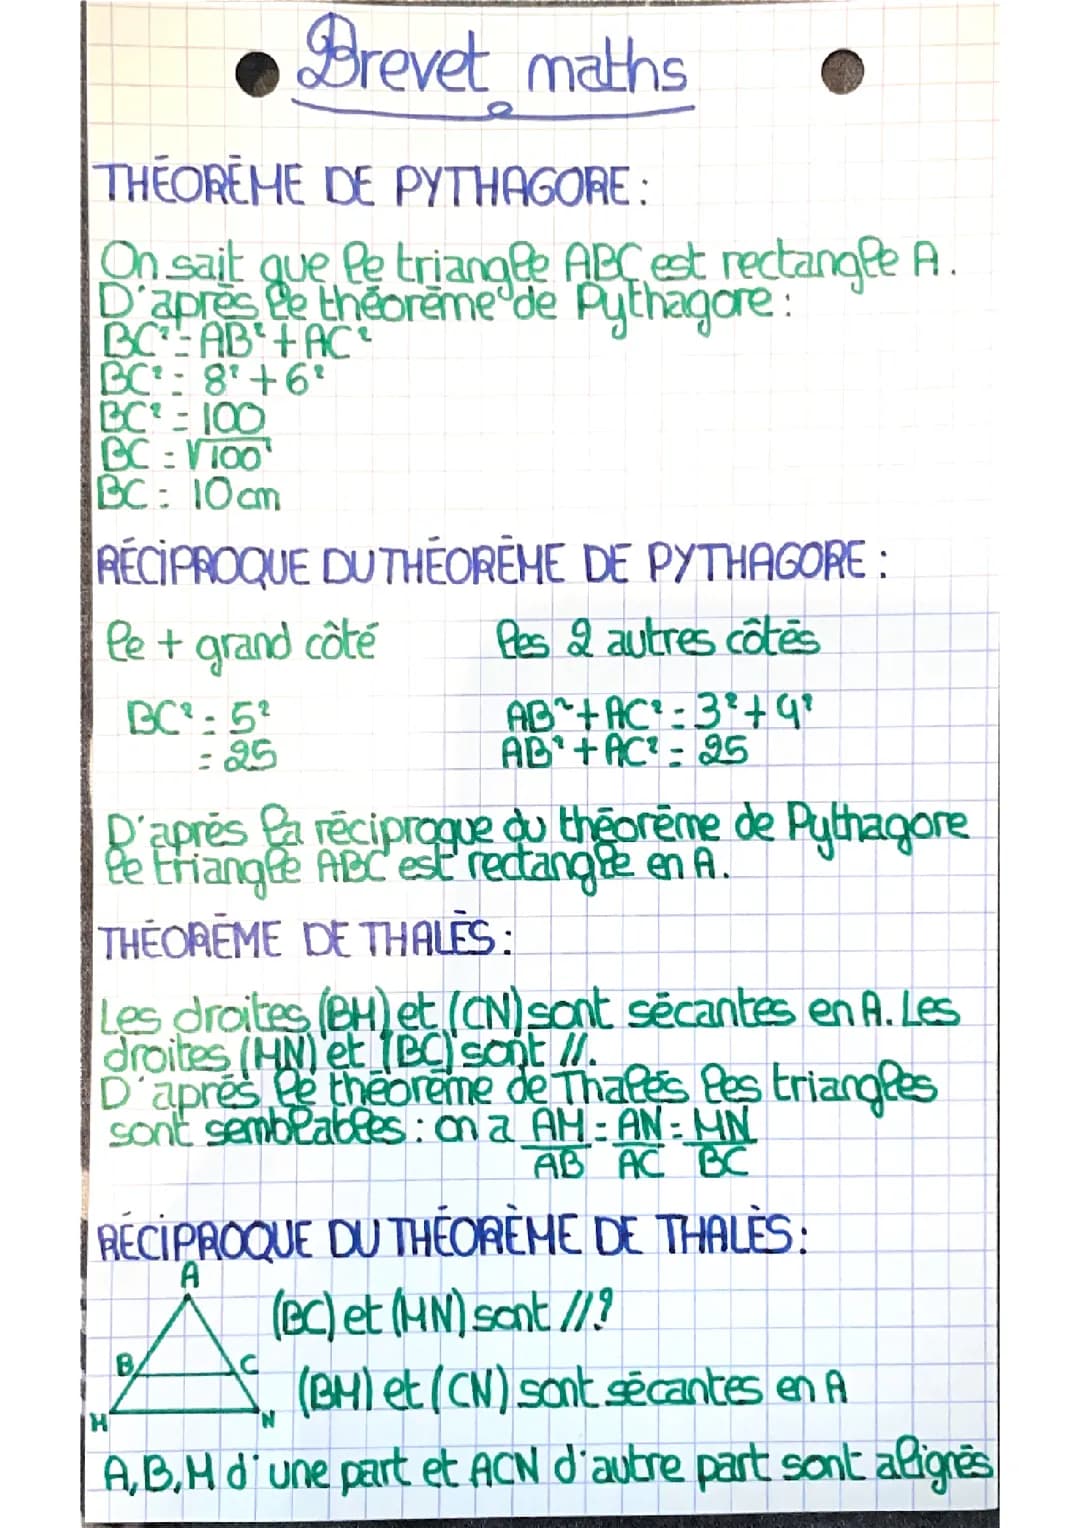 Brevet maths
THÉORÈME DE PYTHAGORE :
On sait que le triangle ABC est rectangle A.
D'après le théorème de Pythagore :
BC² = AB² + AC²
BC² = 8² + 6²
BC² = 100
BC = √100
BC = 10 cm
RÉCIPROQUE DU THÉORÈME DE PYTHAGORE :
le + grand côté
les 2 autres côtés
BC² = 5²
= 25
AB² + AC² = 3² + 4²
AB² + AC² = 25
D'après la réciproque du théorème de Pythagore
le triangle ABC est rectangle en A.
THÉORÈME DE THALÈS :
Les droites (BM) et (CN) sont sécantes en A. Les
droites (MN) et (BC) sont //.
D'après le théorème de Thalès les triangles
sont semblables : on a AM/AB = AN/AC = MN/BC
RÉCIPROQUE DU THÉORÈME DE THALÈS :
A
B
C
M
N
(BC) et (MN) sont // ?
(BM) et (CN) sont sécantes en A
A, B, M d'une part et ACN d'autre part sont alignés